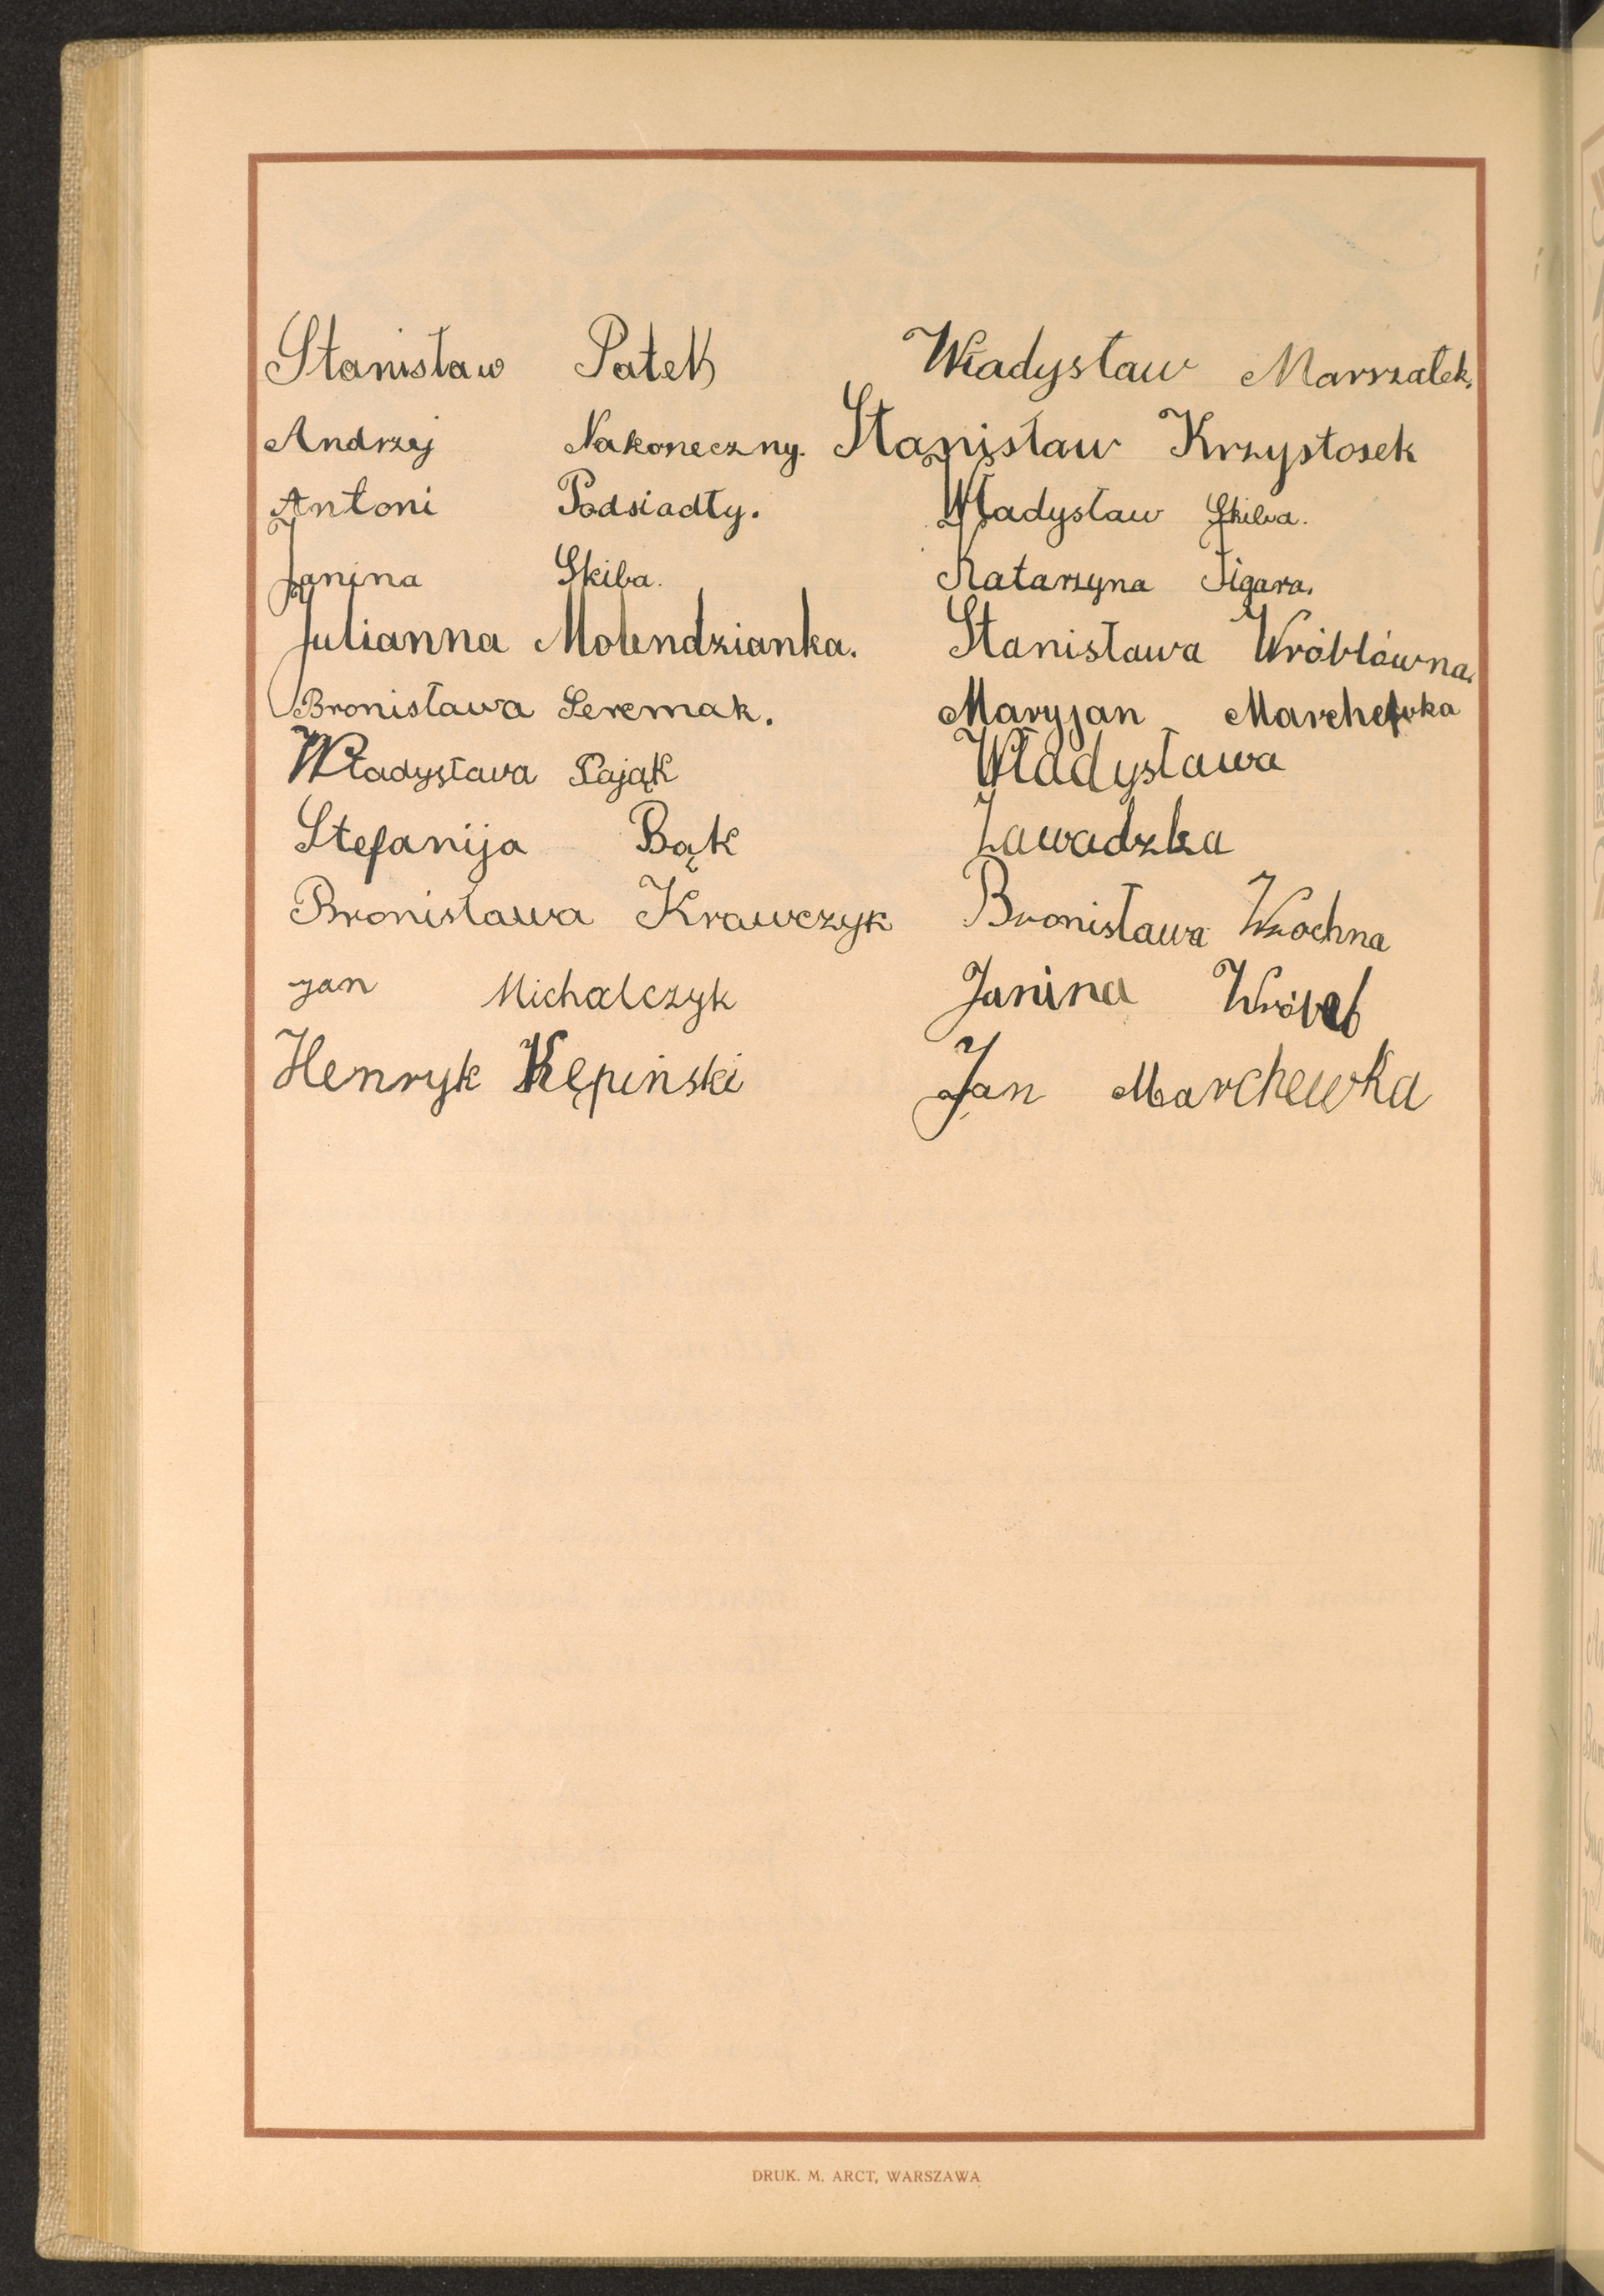 Stanisław Pałek
Andrzej Nakoneczny.
Antoni Podsiadły.
Janina Skiba.
Julianna Molendzianka.
Bronisława Seremak.
Władysława Pająk
Stefanija Bąk
Bronisława Krawczyk
Jan Michalczyk
Henryk Kępiński
Władysław Marszałek.
Stanisław Krzystosek
Władysław Skiba.
Katarzyna Figara.
Stanisława Wróblówna.
Maryjan Marchewka
Władysława
Zawadzka
Bronisława Wrochna
Janina Wróbel
Jan Marchewka
DRUK. M. ARCT, WARSZAWA